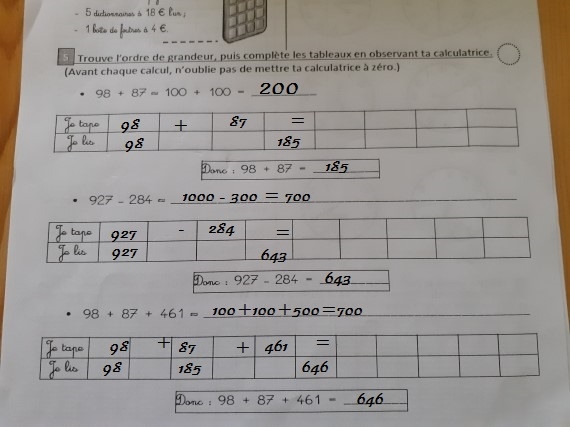 - 5 dictionnaires à 18 € l'un ;
- 1 boîte de feutres à 4 €.
5 Trouve l'ordre de grandeur, puis complète les tableaux en observant ta calculatrice.
(Avant chaque calcul, n'oublie pas de mettre ta calculatrice à zéro.)
• 98 + 87 ≈ 100 + 100 = 200
Je tape 98 + 87 =
Je lis 98 185
Donc : 98 + 87 = 185
• 927 - 284 ≈ 1000 - 300 = 700
Je tape 927 - 284 =
Je lis 927 643
Donc : 927 - 284 = 643
• 98 + 87 + 461 ≈ 100+100+500=700
Je tape 98 + 87 + 461 =
Je lis 98 185 646
Donc : 98 + 87 + 461 = 646